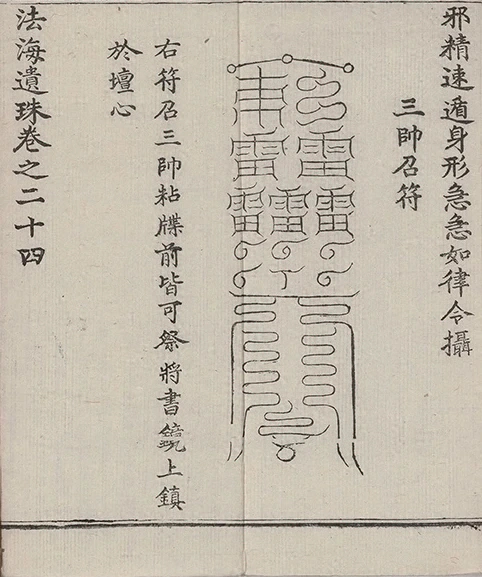 邪精速遁身形急急如律令攝
三帥召符
右符召三帥粘牒前皆可祭將書鏡上鎮
於壇心
法海遺珠卷之二十四